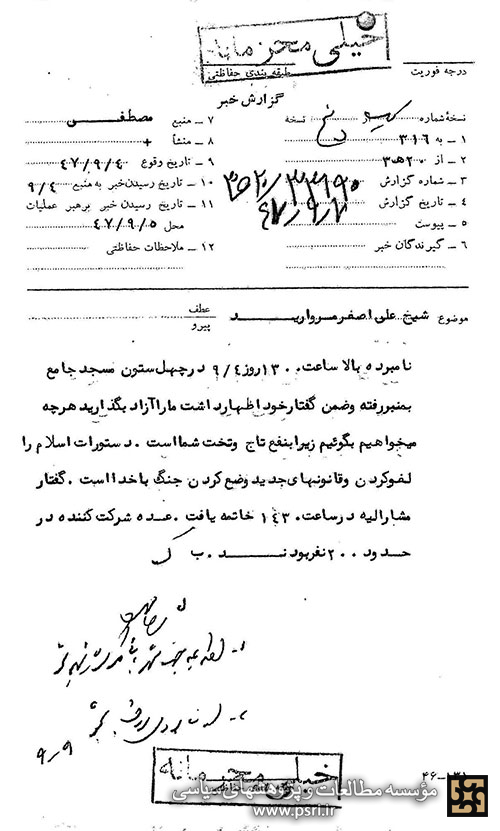 خیلی محرمانه
طبقه بندی حفاظتی
درجه فوریت
گزارش خبر
نسخهٔ شماره از نسخه
۱ ـ به ۳۱۶
۲ ـ از ۲۰هـ۳
۳ ـ شماره گزارش
۴ ـ تاریخ گزارش
۵ ـ پیوست
۶ ـ گیرندگان خبر
۷ ـ منبع مصطفی
۸ ـ منشأ +
۹ ـ تاریخ وقوع ۴۷/۹/۴
۱۰ ـ تاریخ رسیدن خبر به منبع ۹/۴
۱۱ ـ تاریخ رسیدن خبر برهبر عملیات
محل ۴۷/۹/۵
۱۲ ـ ملاحظات حفاظتی
موضوع شیخ علی اصغر مروارید
عطف
پیرو
نامبرده بالا ساعت ۱۳۰۰ روز ۹/۴ در چهل ستون مسجد جامع
بمنبر رفته وضمن گفتار خود اظهار داشت ما را آزاد بگذارید هرچه
میخواهیم بگوئیم زیرا بنفع تاج وتخت شما است . دستورات اسلام را
لغو کردن وقانونهای جدید وضع کردن جنگ با خدا است . گفتار
مشارالیه در ساعت ۱۴۳۰ خاتمه یافت . عده شرکت کننده در
حدود ۲۰۰ نفر بودند . ب ک
۹ـ۹
خیلی محرمانه
۴۶-۱۳۱
مؤسسه مطالعات و پژوهشهای سیاسی
www.psri.ir